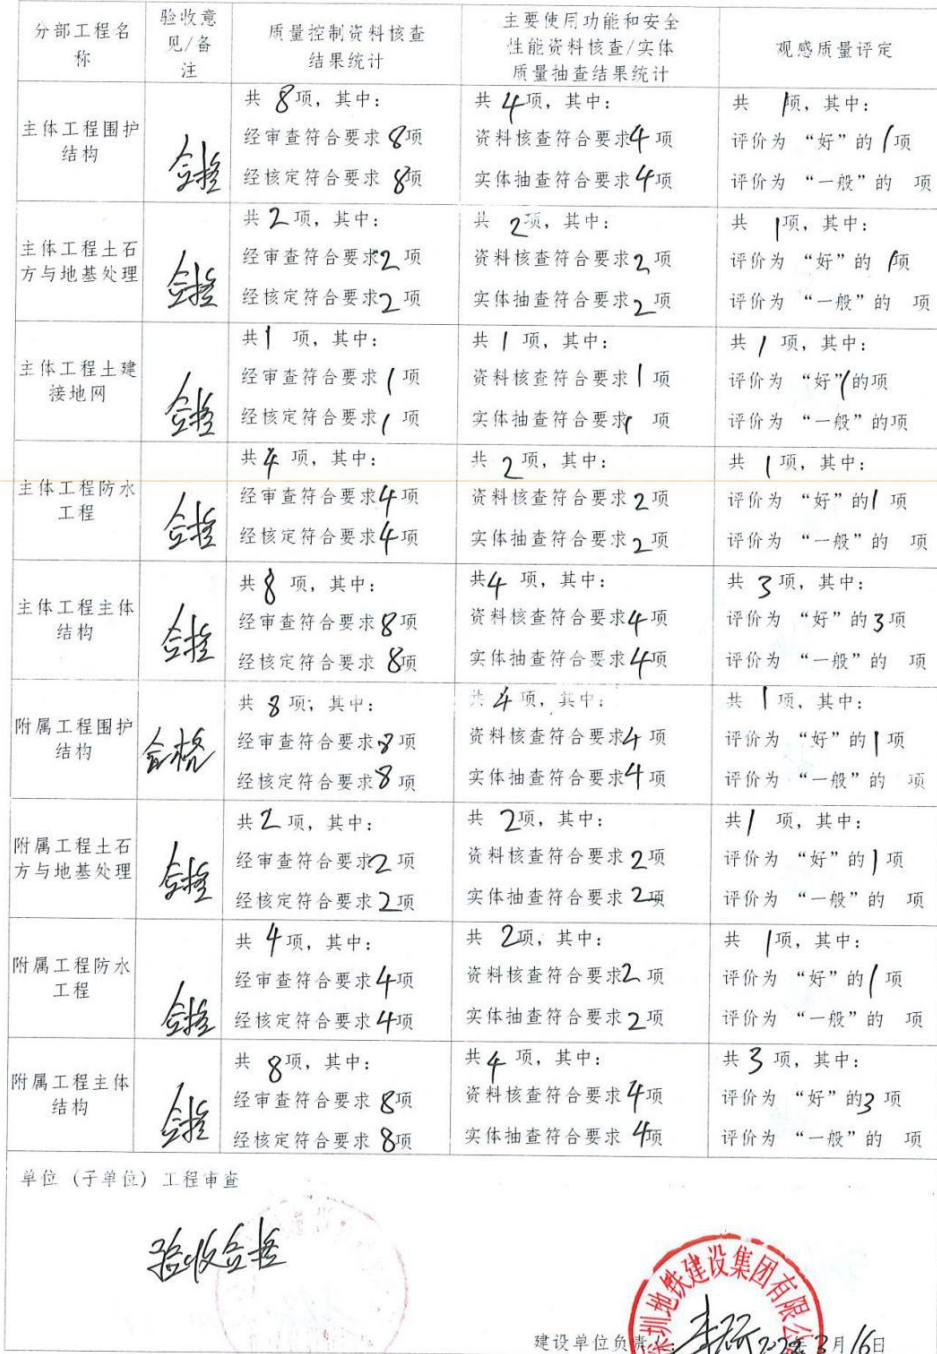 分部工程名称 验收意见/备注 质量控制资料核查结果统计 主要使用功能和安全性能资料核查/实体质量抽查结果统计 观感质量评定
主体工程围护结构 合格
共 8项，其中：
经审查符合要求 8项
经核定符合要求 8项
共 4项，其中：
资料核查符合要求4项
实体抽查符合要求4项
共 1项，其中：
评价为 “好”的 1项
评价为 “一般”的 项
主体工程土石方与地基处理 合格
共2项，其中：
经审查符合要求2项
经核定符合要求2项
共 2项，其中：
资料核查符合要求2项
实体抽查符合要求2项
共 1项，其中：
评价为 “好”的 1项
评价为 “一般”的 项
主体工程土建接地网 合格
共1 项，其中：
经审查符合要求1项
经核定符合要求1项
共1项，其中：
资料核查符合要求1项
实体抽查符合要求1项
共1项，其中：
评价为 “好”1的项
评价为 “一般”的项
主体工程防水工程 合格
共4项，其中：
经审查符合要求4项
经核定符合要求4项
共 2项，其中：
资料核查符合要求2项
实体抽查符合要求2项
共 1项，其中：
评价为 “好”的1项
评价为 “一般”的 项
主体工程主体结构 合格
共8 项，其中：
经审查符合要求8项
经核定符合要求8项
共4 项，其中：
资料核查符合要求4项
实体抽查符合要求4项
共 3项，其中：
评价为 “好”的3项
评价为 “一般”的 项
附属工程围护结构 合格
共 8项，其中：
经审查符合要求8项
经核定符合要求8项
共4项，其中：
资料核查符合要求4项
实体抽查符合要求4项
共 1项，其中：
评价为 “好”的1项
评价为 “一般”的 项
附属工程土石方与地基处理 合格
共2项，其中：
经审查符合要求2项
经核定符合要求2项
共 2项，其中：
资料核查符合要求2项
实体抽查符合要求2项
共1 项，其中：
评价为 “好”的1项
评价为 “一般”的 项
附属工程防水工程 合格
共 4项，其中：
经审查符合要求4项
经核定符合要求4项
共 2项，其中：
资料核查符合要求2项
实体抽查符合要求2项
共 1项，其中：
评价为 “好”的1项
评价为 “一般”的 项
附属工程主体结构 合格
共 8项，其中：
经审查符合要求 8项
经核定符合要求 8项
共4 项，其中：
资料核查符合要求4项
实体抽查符合要求4项
共3项，其中：
评价为 “好”的3项
评价为 “一般”的 项
单位（子单位）工程审查
验收合格
圳地铁建设集团有限公
建设单位负责 3月16日